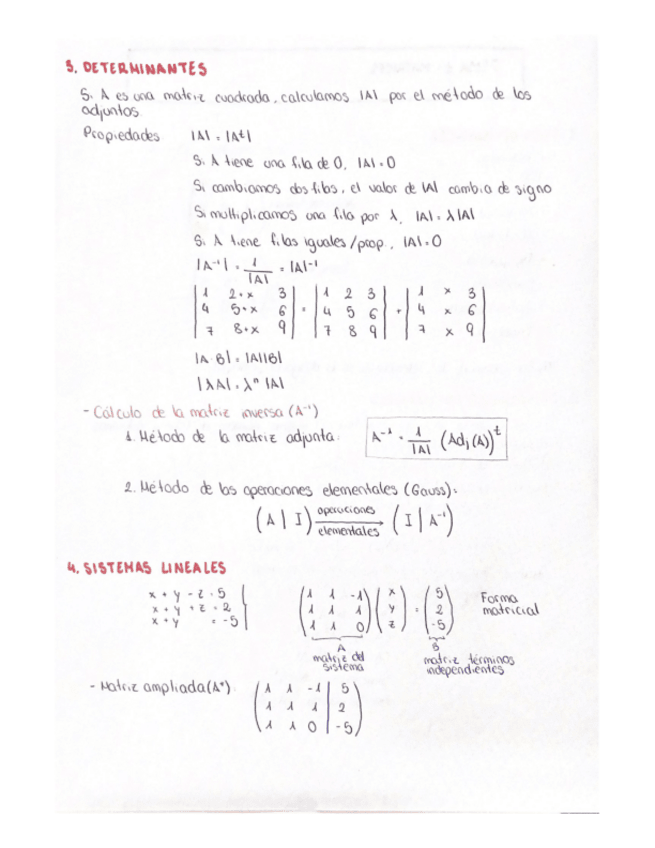 3. DETERMINANTES
Si A es una matriz cuadrada, calculamos |A| por el método de los
adjuntos.
Propiedades |A| = |Aᵗ|
Si A tiene una fila de 0, |A| = 0
Si cambiamos dos filas, el valor de |A| cambia de signo
Si multiplicamos una fila por λ, |A| = λ|A|
Si A tiene filas iguales/prop., |A| = 0
|A⁻¹| = 1/|A| = |A|⁻¹
|1 2+x 3| = |1 2 3| + |1 x 3|
|4 5+x 6| |4 5 6| |4 x 6|
|7 8+x 9| |7 8 9| |7 x 9|
|A·B| = |A||B|
|λA| = λⁿ |A|
- Cálculo de la matriz inversa (A⁻¹)
1. Método de la matriz adjunta: A⁻¹ = 1/|A| (Adj(A))ᵗ
2. Método de las operaciones elementales (Gauss):
(A | I) operaciones elementales → (I | A⁻¹)
4. SISTEMAS LINEALES
x + y - z = 5
x + y + z = 2
x + y = -5
(1 1 -1) (x) = (5) Forma
(1 1 1) (y) (2) matricial
(1 1 0) (z) (-5)
A B
matriz del matriz términos
sistema independientes
- Matriz ampliada (A*) (1 1 -1 | 5)
(1 1 1 | 2)
(1 1 0 | -5)